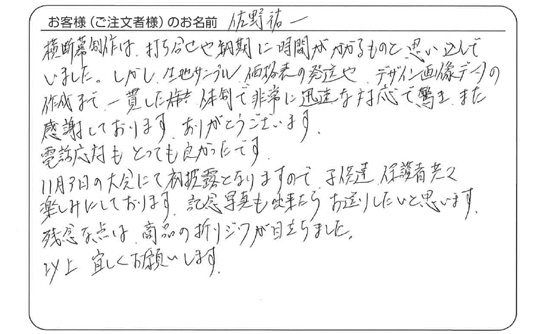 お客様（ご注文者様）のお名前 佐野祐一
横断幕制作は、打ち合せや納期に時間がかかるものと思い込んで
いました。しかし、生地サンプル、価格表の発送や、デザイン画像データの
作成まで一貫した 体制で非常に迅速な対応で驚き、また
感謝しております。ありがとうございます。
電話応対もとっても良かったです。
11月3日の大会にて初披露となりますので、子供達、保護者共々
楽しみにしております。記念写真も出来たらお送りしたいと思います。
残念な点は、商品の折りジワが目立ちました。
以上 宜しくお願いします。